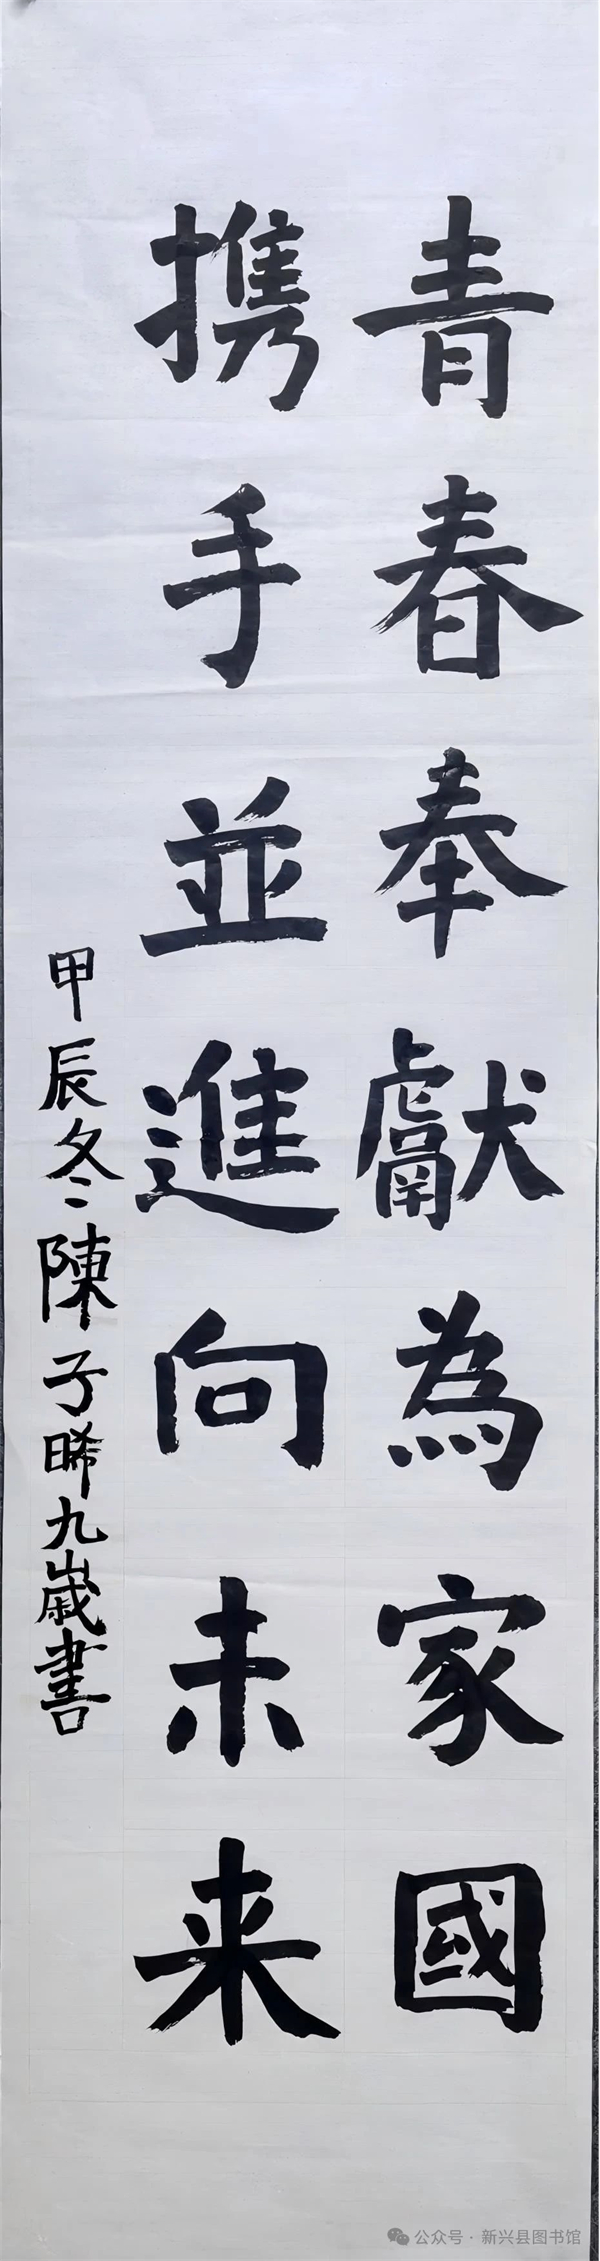 青春奉獻為家國
携手並進向未来
甲辰冬陳子晞九歲書
公众号·新兴县图书馆